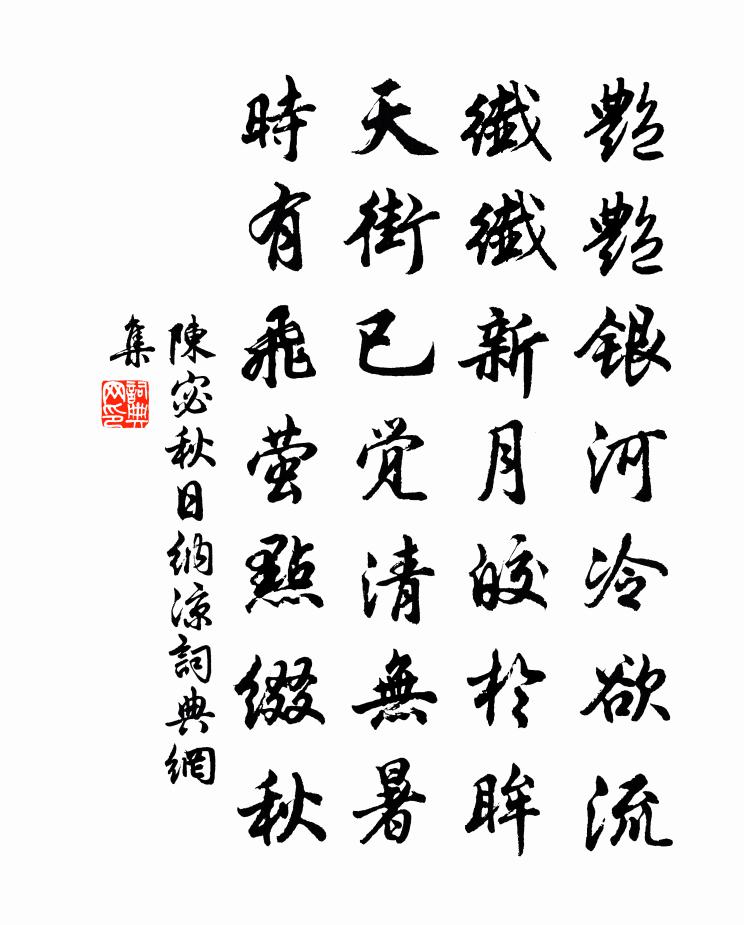 艷艷銀河冷欲流
纖纖新月皎於眸
天街已觉清無暑
時有飛萤點綴秋
陳宓秋日纳凉詞典網
集
詞典
网印